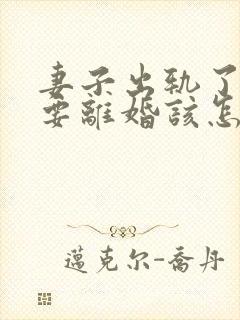 妻子出轨了
要離婚該怎
邁克尔-喬丹